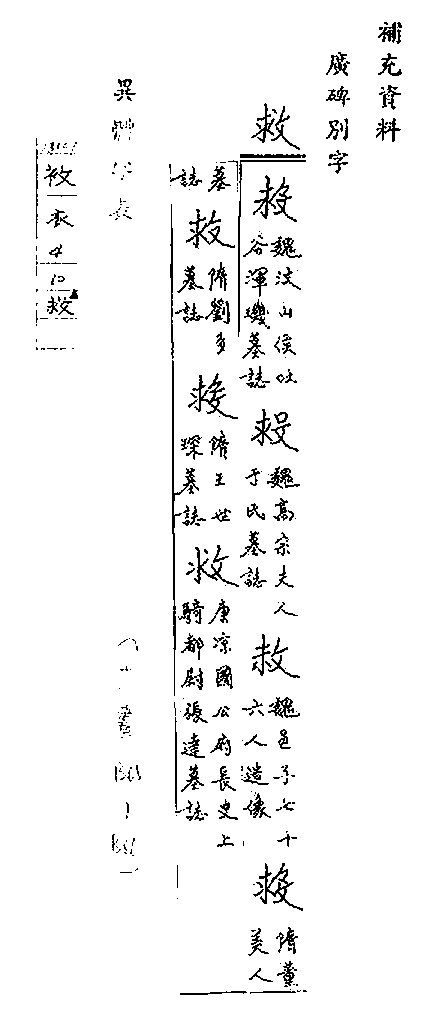 補充資料
廣碑別字
救
救 魏汶山侯吐谷渾璣墓誌
救 魏高宗夫人于氏墓誌
救 魏邑子七十六人造像
救 隋董美人
墓誌
救 隋劉多墓誌
救 隋王世琛墓誌
救 唐凉國公府長史上騎都尉張達墓誌
異體字表
衣
4
10
救